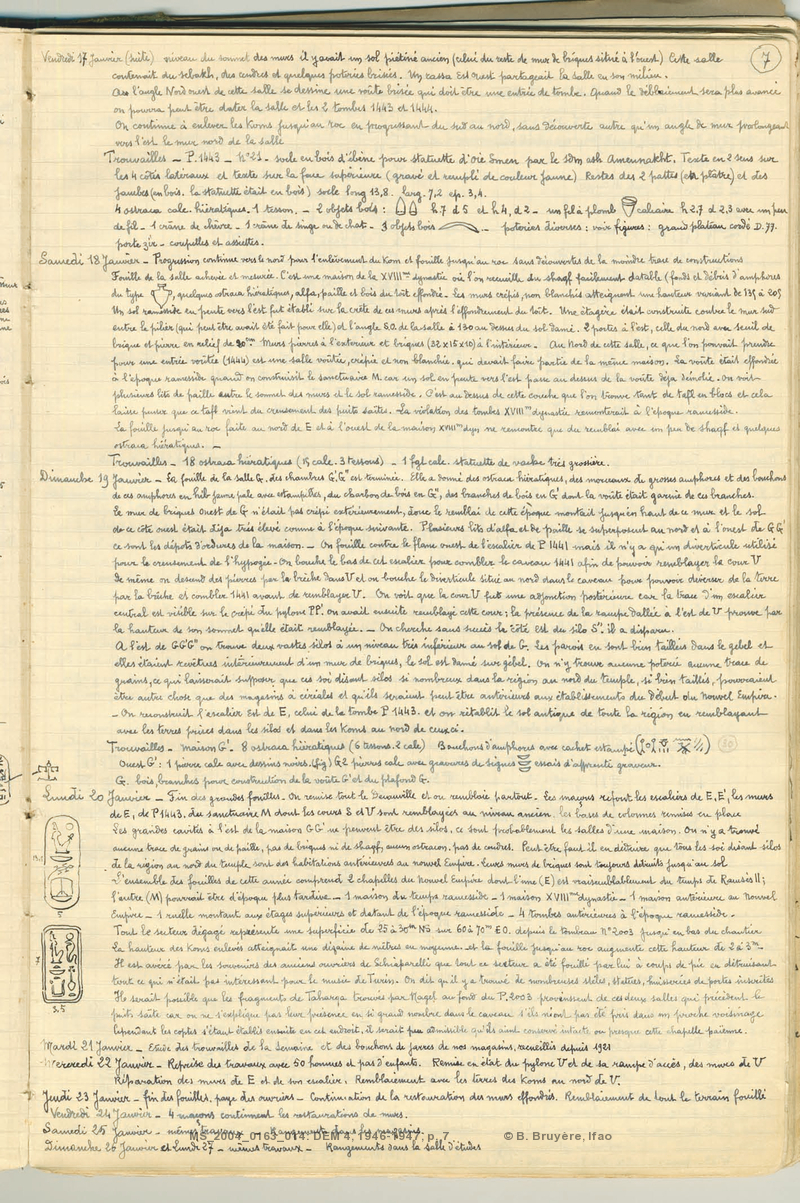 7
Vendredi 17 Janvier (suite) niveau du sommet des murs il y avait un sol piétiné ancien (celui du reste de mur de briques situé à l'ouest) Cette salle
contenait du sebakh, des cendres et quelques poteries brisées. Un cassa Est Ouest partageait la salle en son milieu.
A l'angle Nord ouest de cette salle se dessine une voûte brisée qui doit être une entrée de tombe. Quand le déblaiement sera plus avancé
on pourra peut être dater la salle et les 2 tombes 1443 et 1444.
On continue à enlever les Koms jusqu'au roc en progressant du sud au nord, sans découverte autre qu'un angle de mur prolongeant
vers l'est le mur nord de la salle
Trouvailles - P.1443 - N°21 - socle en bois d'ébène pour statuette d'oie Smen par le sdm ash Amennakht. Texte en 2 sens sur
les 4 côtés latéraux et texte sur la face supérieure (gravé et rempli de couleur jaune). Restes des 2 pattes (en plâtre) et des
jambes (en bois. la statuette était en bois) socle long 13,8. larg. 7,2 ep. 3,4.
4 ostraca calc. hiératiques. 1 tesson. - 2 objets bois : h 7. d 5 et h 4. d 2 - un fil à plomb calcaire h 2.7 d 2,3 avec un peu
de fil - 1 crâne de chèvre - 1 crâne de singe ou de chat - objets bois - poteries diverses : voir figures : grand plateau cordé D. 77.
porte zir - coupelles et assiettes.
Samedi 18 Janvier - Progression continue vers le nord pour l'enlèvement du Kom et fouille jusqu'au roc sans découvertes de la moindre trace de constructions
Fouille de la salle achevée et mesurée. C'est une maison de la XVIIIme dynastie où l'on recueille du shagf facilement datable (fonds et débris d'amphores
du type , quelques ostraca hiératiques, alfa, paille et bois du toit effondré - les murs crépis, non blanchis atteignent une hauteur variant de 135 à 205
Un sol ramesside en pente vers l'est fut établi sur la crête de ces murs après l'effondrement du toit. Une étagère était construite contre le mur sud
entre le pilier (qui peut être avait été fait pour elle) et l'angle S.O. de la salle à 130 au dessus du sol damé. 2 portes à l'est, celle du nord avec seuil de
brique et pierre en relief de Murs pierres à l'extérieur et briques (32x15x10) à l'intérieur. - Au Nord de cette salle, ce que l'on pouvait prendre
pour une entrée voûtée (1444) est une salle voûtée, crépie et non blanchie, qui devait faire partie de la même maison. La voûte était effondrée
à l'époque ramesside quand on construisit le sanctuaire M. car un sol en pente vers l'est passe au dessus de la voûte déjà démolie. On voit
plusieurs lits de paille entre le sommet des murs et le sol ramesside. C'est au dessus de cette couche que l'on trouve tant de tafl en blocs et cela
laisse penser que ce tafl vient du creusement des puits saïtes. La violation des tombes XVIIIme dynastie remonterait à l'époque ramesside.
La fouille jusqu'au roc faite au nord de E et à l'ouest de la maison XVIIIme dyn. ne rencontre que du remblai avec un peu de shagf et quelques
ostraca hiératiques. -
Trouvailles - 18 ostraca hiératiques (15 calc. 3 tessons) - 1 fgt calc. statuette de vache très grossière.
Dimanche 19 Janvier - La fouille de la salle G. des chambres G', G'' est terminée. Elle a donné des ostraca hiératiques, des morceaux de grosses amphores et des bouchons
de ces amphores en hib jaune pale avec estampilles, du charbon de bois en G'', des branches de bois en G' dont la voûte était garnie de ces branches.
Le mur de briques ouest de G n'était pas crépi extérieurement, donc le remblai de cette époque montait jusqu'en haut de ce mur et le sol
de ce côté ouest était déjà très élevé comme à l'époque suivante. Plusieurs lits d'alfa et de paille se superposent au nord et à l'ouest de G G'
ce sont les dépôts d'ordures de la maison. - On fouille contre le flanc ouest de l'escalier de P 1441 mais il n'y a qu'un diverticule utilisé
pour le creusement de l'hypogée. On bouche le bas de cet escalier pour combler le caveau 1441 afin de pouvoir remblayer la cour V
de même on descend des pierres par la brèche dans V et on bouche le diverticule situé au nord dans le caveau pour pouvoir déverser de la terre
par la brèche et combler 1441 avant de remblayer V. On voit que la cour V fut une adjonction postérieure car la trace d'un escalier
central est visible sur le crépi du pylone PP'. on avait ensuite remblayé cette cour; la présence de la rampe dallée à l'est de V prouve par
la hauteur de son sommet qu'elle était remblayée. - On cherche sans succès le côté Est du silo S'. il a disparu.
A l'est de GG'G'' on trouve deux vastes silos à un niveau très inférieur au sol de G. Les parois en sont bien taillées dans le gebel et
elles étaient revêtues intérieurement d'un mur de briques, le sol est damé sur gebel. On n'y trouve aucune poterie aucune trace de
grains, ce qui laisserait supposer que ces soi disant silos si nombreux dans la région au nord du temple, si bien taillés, pourraient
être autre chose que des magasins à céréales et qu'ils seraient peut être antérieurs aux établissements du début du nouvel Empire.
- On reconstruit l'escalier Est de E, celui de la tombe P 1443. et on rétablit le sol antique de toute la région en remblayant
avec les terres prises dans les silos et dans les Koms au nord de ceux ci.
Trouvailles - maison G'. 8 ostraca hiératiques (6 tessons. 2 calc) Bouchons d'amphores avec cachet estampé
Ouest G' : 1 pierre calc avec dessins noirs. (fig) G 2 pierres calc avec gravures de signes essais d'apprenti graveur.
G. bois, branches pour construction de la voûte G' et du plafond G.
Lundi 20 Janvier - Fin des grandes fouilles. On remise tout le Decauville et on remblaie partout. Les maçons refont les escaliers de E, E', les murs
de E, de P1443, du sanctuaire M dont les cours S et V sont remblayées au niveau ancien. les bases de colonnes remises en place
Les grandes cavités à l'est de la maison GG' ne peuvent être des silos, ce sont probablement les salles d'une maison. On n'y a trouvé
aucune trace de grains ou de paille, pas de briques ni de shagf, aucun ostracon, pas de cendres. Peut être faut il en déduire que tous les soi disant silos
de la région au nord du temple sont des habitations antérieures au nouvel Empire. Leurs murs de briques sont toujours détruits jusqu'au sol
L'ensemble des fouilles de cette année comprend 2 chapelles du Nouvel Empire dont l'une (E) est vraisemblablement du temps de Ramsès II;
l'autre (M) pourrait être d'époque plus tardive - 1 maison du temps ramesside - 1 maison XVIIIme dynastie - 1 maison antérieure au Nouvel
Empire - 1 ruelle montant aux étages supérieurs et datant de l'époque ramesside - 4 tombes antérieures à l'époque ramesside -
Tout le secteur dégagé représente une superficie de 25 à 30m NS sur 60 à 70m EO. depuis le tombeau N° 2003 jusqu'en bas du chantier
la hauteur des Koms enlevés atteignait une dizaine de mètres en moyenne et la fouille jusqu'au roc augmente cette hauteur de 2 à 3m -
Il est avéré par les souvenirs des anciens ouvriers de Schiaparelli que tout ce secteur a été fouillé par lui à coups de pic en détruisant
tout ce qui n'était pas intéressant pour le musée de Turin. On dit qu'il y a trouvé de nombreuses stèles, statues, huisseries de portes inscrites
Il serait possible que les fragments de Taharqa trouvés par Nagel au fond du P.2003 proviennent de ces deux salles qui précèdent le
puits saïte car on ne s'explique pas leur présence en si grand nombre dans ce caveau s'ils n'ont pas été pris dans un proche voisinage
Cependant les coptes s'étant établis ensuite en cet endroit, il serait peu admissible qu'ils aient conservé intacte ou presque cette chapelle païenne.
Mardi 21 Janvier - Etude des trouvailles de la semaine et des bouchons de jarres de nos magasins, recueillis depuis 1921
Mercredi 22 Janvier - Reprise des travaux avec 50 hommes et pas d'enfants. Remise en état du pylone V et de sa rampe d'accès, des murs de V
Réparation des murs de E et de son escalier. Remblaiement avec les terres des Koms au nord de V.
Jeudi 23 Janvier - fin des fouilles, paye des ouvriers - Continuation de la restauration des murs effondrés. Remblaiement de tout le terrain fouillé
Vendredi 24 Janvier - 4 maçons continuent les restaurations de murs.
Samedi 25 Janvier - mêmes travaux - Rangements dans les magasins
Dimanche 26 Janvier et Lundi 27 - mêmes travaux - Rangements dans la salle d'études
MS_2004_0163_014. DEM 4, 1946-1947, p. 7 © B. Bruyère, Ifao